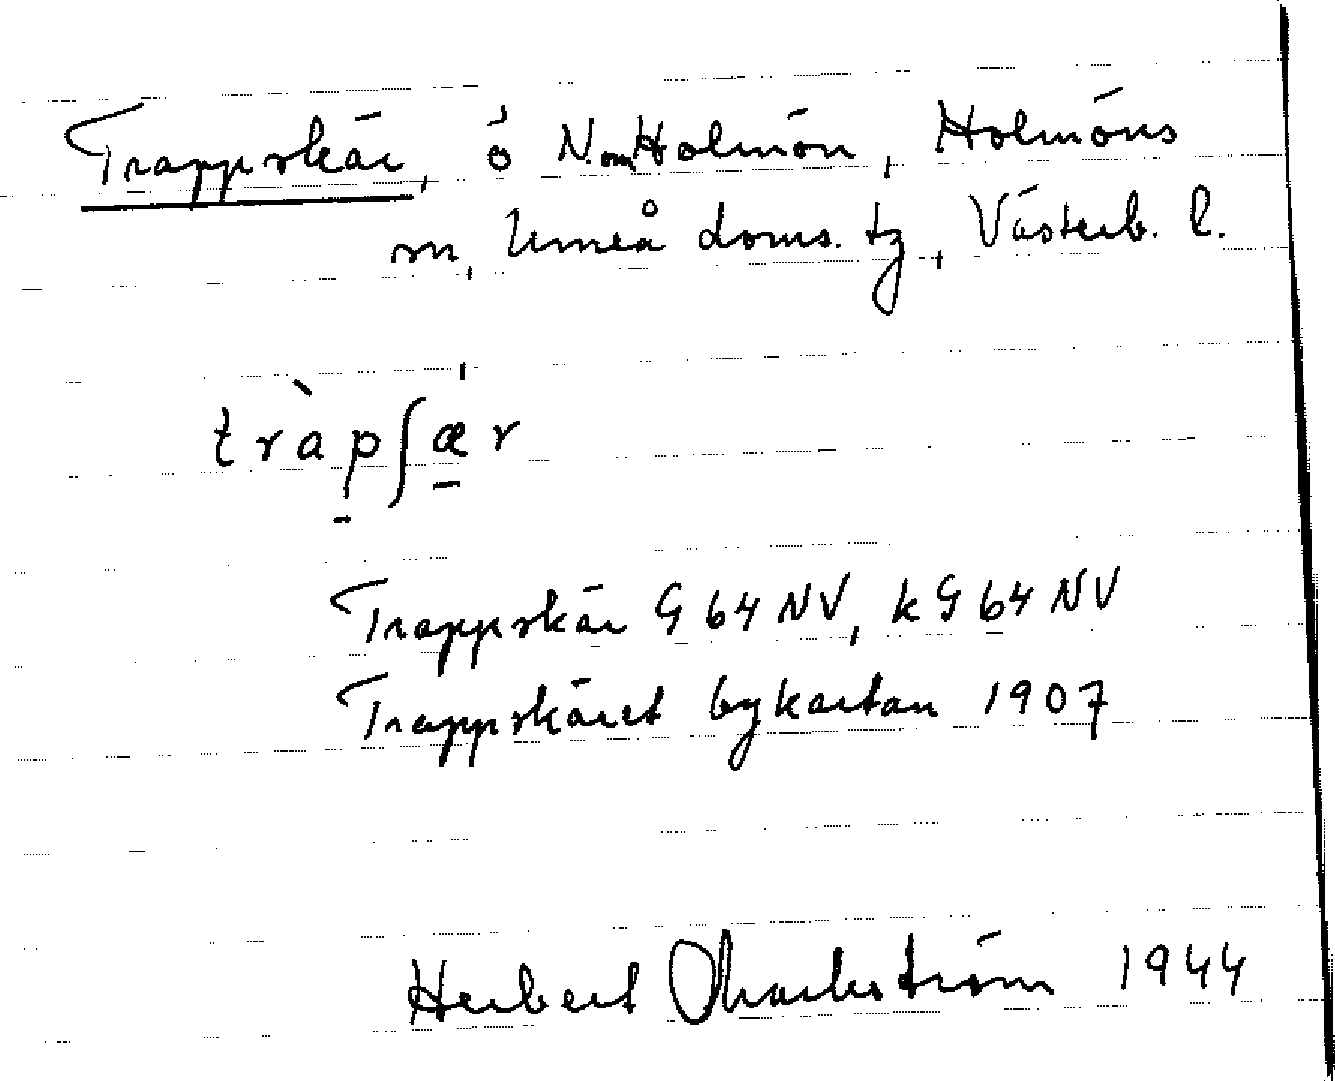 Trappskär, ö N om Holmön, Holmöns
sn, Umeå doms. tg, Västerb. l.
tràpʃæ̱r
Trappskär G 64 NV, k G 64 NV
Trappskäret bykartan 1907
Herbert Markström 1944